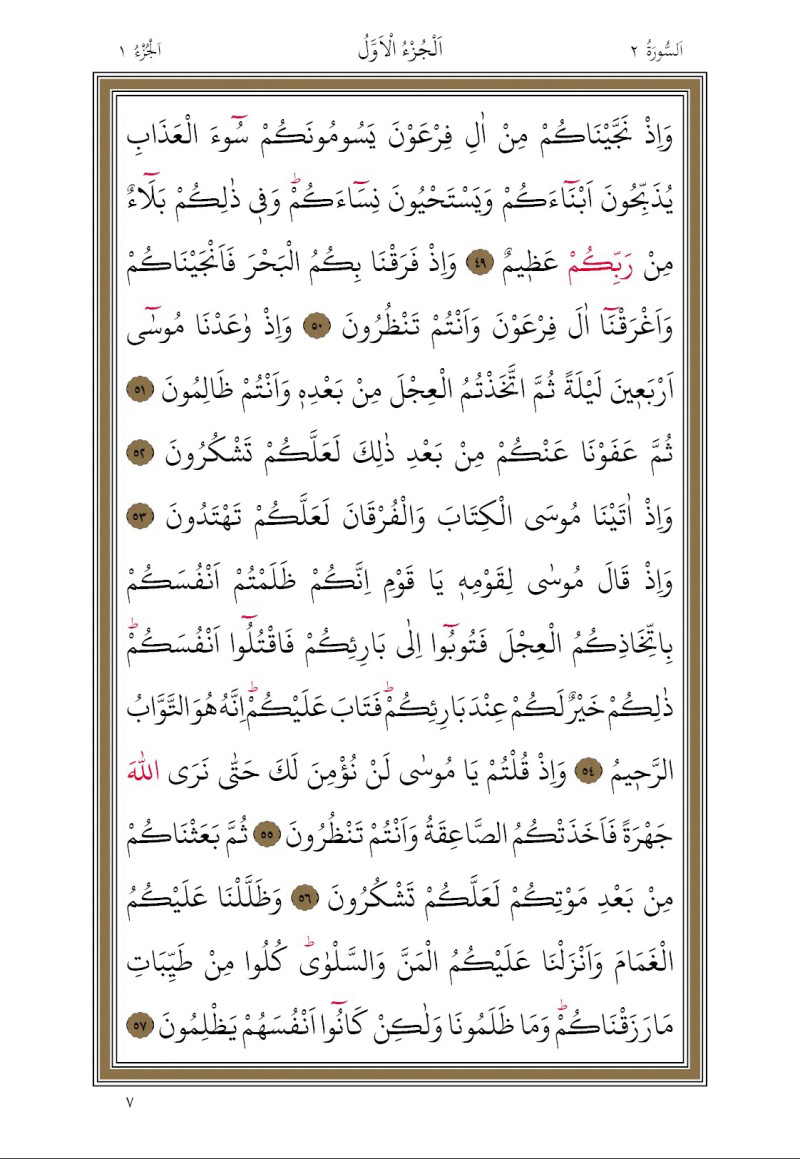 اَلسُّورَةُ ٢ اَلْجُزْءُ الْاَوَّلُ اَلْجُزْءُ ١
وَاِذْ نَجَّيْنَاكُمْ مِنْ اٰلِ فِرْعَوْنَ يَسُومُونَكُمْ سُٓوءَ الْعَذَابِ
يُذَبِّحُونَ اَبْنَٓاءَكُمْ وَيَسْتَحْيُونَ نِسَٓاءَكُمْۜ وَفٖي ذٰلِكُمْ بَلَٓاءٌ
مِنْ رَبِّكُمْ عَظٖيمٌ ٤٩ وَاِذْ فَرَقْنَا بِكُمُ الْبَحْرَ فَاَنْجَيْنَاكُمْ
وَاَغْرَقْنَٓا اٰلَ فِرْعَوْنَ وَاَنْتُمْ تَنْظُرُونَ ٥٠ وَاِذْ وٰعَدْنَا مُوسٰٓى
اَرْبَعٖينَ لَيْلَةً ثُمَّ اتَّخَذْتُمُ الْعِجْلَ مِنْ بَعْدِهٖ وَاَنْتُمْ ظَالِمُونَ ٥١
ثُمَّ عَفَوْنَا عَنْكُمْ مِنْ بَعْدِ ذٰلِكَ لَعَلَّكُمْ تَشْكُرُونَ ٥٢
وَاِذْ اٰتَيْنَا مُوسَى الْكِتَابَ وَالْفُرْقَانَ لَعَلَّكُمْ تَهْتَدُونَ ٥٣
وَاِذْ قَالَ مُوسٰى لِقَوْمِهٖ يَا قَوْمِ اِنَّكُمْ ظَلَمْتُمْ اَنْفُسَكُمْ
بِاتِّخَاذِكُمُ الْعِجْلَ فَتُوبُٓوا اِلٰى بَارِئِكُمْ فَاقْتُلُٓوا اَنْفُسَكُمْۜ
ذٰلِكُمْ خَيْرٌ لَكُمْ عِنْدَ بَارِئِكُمْۜ فَتَابَ عَلَيْكُمْۜ اِنَّهُ هُوَ التَّوَّابُ
الرَّحٖيمُ ٥٤ وَاِذْ قُلْتُمْ يَا مُوسٰى لَنْ نُؤْمِنَ لَكَ حَتّٰى نَرَى اللّٰهَ
جَهْرَةً فَاَخَذَتْكُمُ الصَّاعِقَةُ وَاَنْتُمْ تَنْظُرُونَ ٥٥ ثُمَّ بَعَثْنَاكُمْ
مِنْ بَعْدِ مَوْتِكُمْ لَعَلَّكُمْ تَشْكُرُونَ ٥٦ وَظَلَّلْنَا عَلَيْكُمُ
الْغَمَامَ وَاَنْزَلْنَا عَلَيْكُمُ الْمَنَّ وَالسَّلْوٰىۜ كُلُوا مِنْ طَيِّبَاتِ
مَا رَزَقْنَاكُمْۜ وَمَا ظَلَمُونَا وَلٰكِنْ كَانُٓوا اَنْفُسَهُمْ يَظْلِمُونَ ٥٧
٧